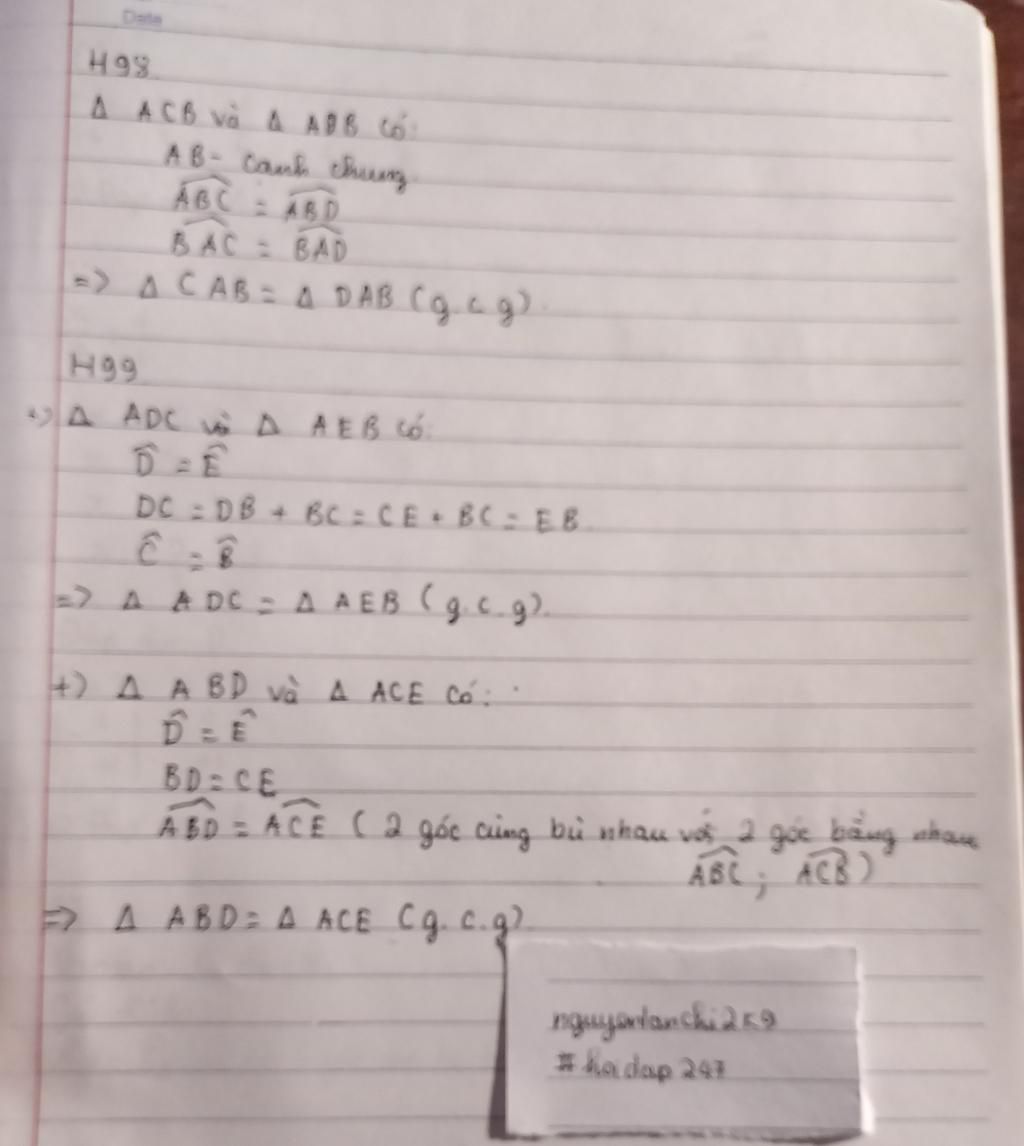 Date
H98
Δ ACB và Δ ADB có:
AB - cạnh chung
\widehat{ABC} = \widehat{ABD}
\widehat{BAC} = \widehat{BAD}
=> Δ CAB = Δ DAB (g.c.g).
H99
+) Δ ADC và Δ AEB có:
\widehat{D} = \widehat{E}
DC = DB + BC = CE + BC = EB
\widehat{C} = \widehat{B}
=> Δ ADC = Δ AEB (g.c.g).
+) Δ ABD và Δ ACE có:
\widehat{D} = \widehat{E}
BD = CE
\widehat{ABD} = \widehat{ACE} (2 góc cùng bù nhau với 2 góc bằng nhau
\widehat{ABC}; \widehat{ACB})
=> Δ ABD = Δ ACE (g.c.g)
nguyenlanchi2k9
#hoidap247